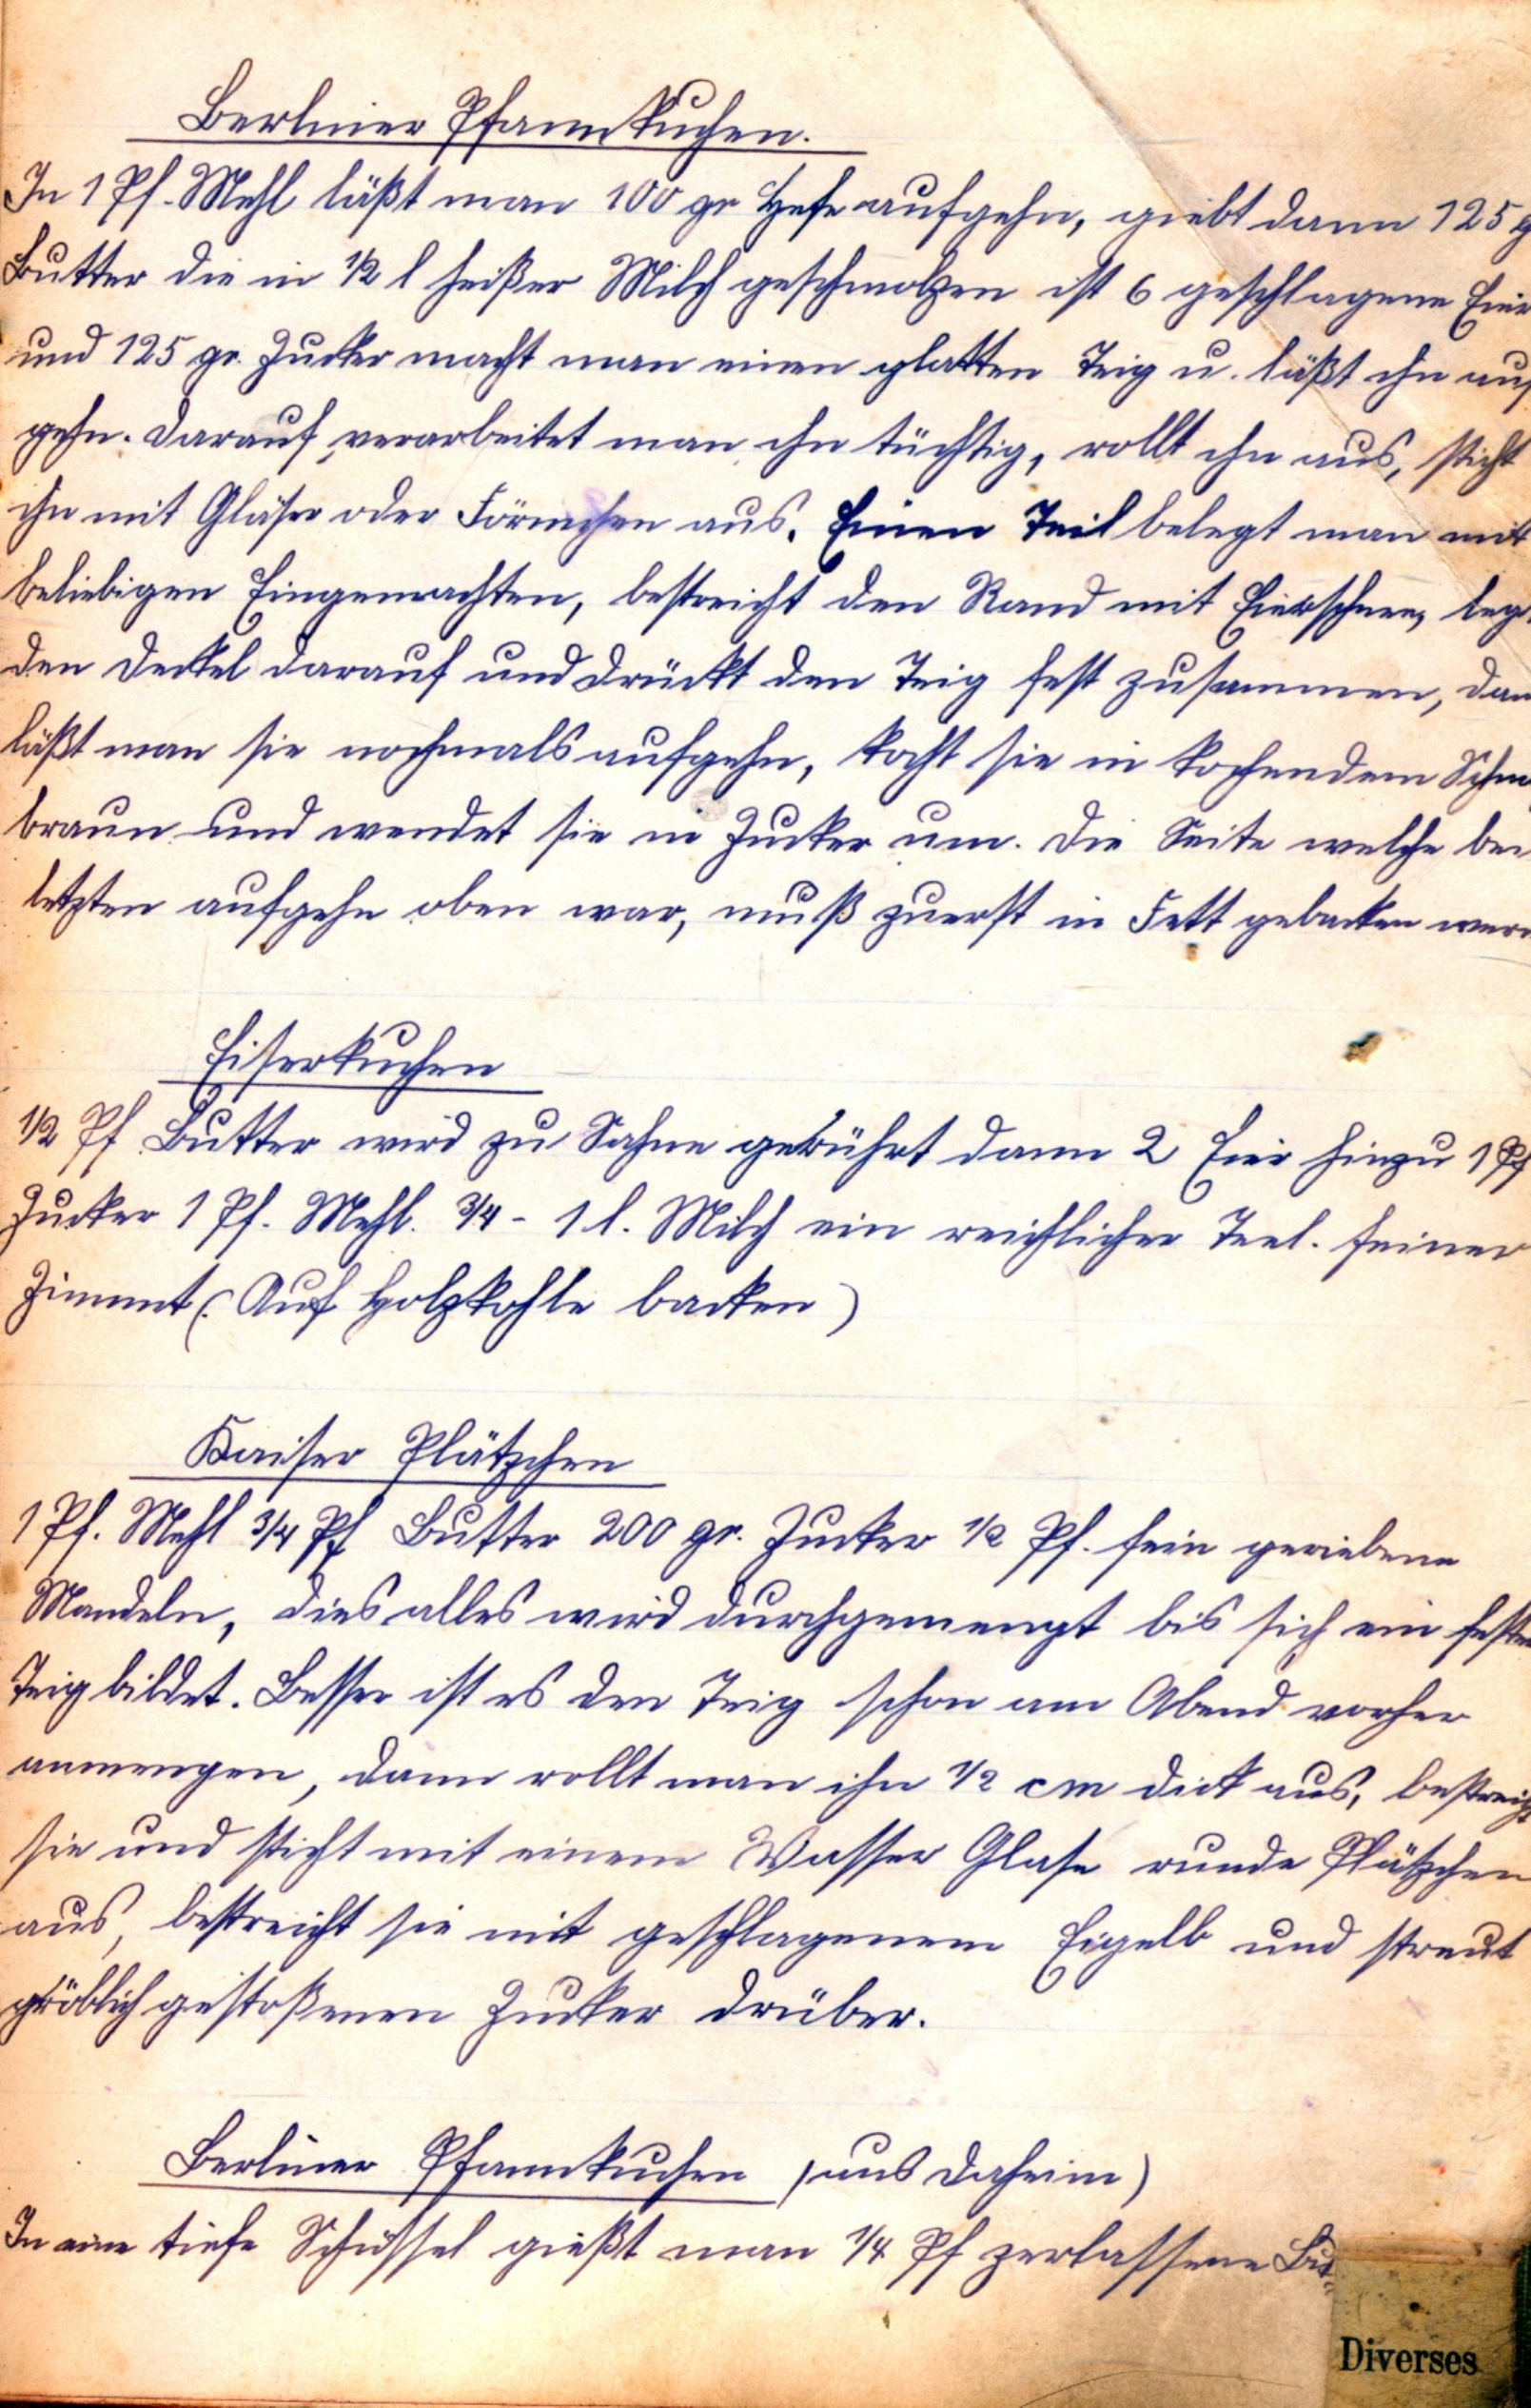 Berliner Pfannkuchen.
In 1 Pf. Mehl läßt man 100 gr Hefe aufgehn, giebt dann 125 g
Butter die in 1/2 l heißer Milch geschmolzen ist 6 geschlagene Eier
und 125 gr. Zucker macht man einen glatten Teig u. läßt ihn auf
gehn. Darauf verarbeitet man ihn tüchtig, rollt ihn aus, sticht
ihn mit Gläser oder Förmchen aus. Einen Teil belegt man mit
beliebigen Eingemachten, bestreicht den Rand mit Eierschnee, legt
den Deckel darauf und drückt den Teig fest zusammen, dan
läßt man sie nochmals aufgehn, kocht sie in kochendem Schm
braun und wendet sie in Zucker um. Die Seite welche bei
letzten aufgehn oben war, muß zuerst in Fett gebacken wer
Eiserkuchen
1/2 Pf Butter wird zu Sahne gerührt dann 2 Eier hinzu 1 Pf
Zucker 1 Pf. Mehl. 3/4 - 1 l. Milch ein reichlicher Teel. feiner
Zimmt (Auf Holzkohle backen)
Kaiser Plätzchen
1 Pf. Mehl 3/4 Pf Butter 200 gr. Zucker 1/2 Pf. fein geriebene
Mandeln, dies alles wird durchgemengt bis sich ein fester
Teig bildet. Besser ist es den Teig schon am Abend vorher
anmengen, dann rollt man ihn 1/2 cm dick aus, bestreicht
sie und sticht mit einem Wasser Glase runde Plätzchen
aus, bestreicht sie mit geschlagenem Eigelb und streut
gröblich gestoßenen Zucker drüber.
Berliner Pfannkuchen (aus Daheim)
In eine tiefe Schüssel gießt man 1/4 Pf zerlassene But
Diverses